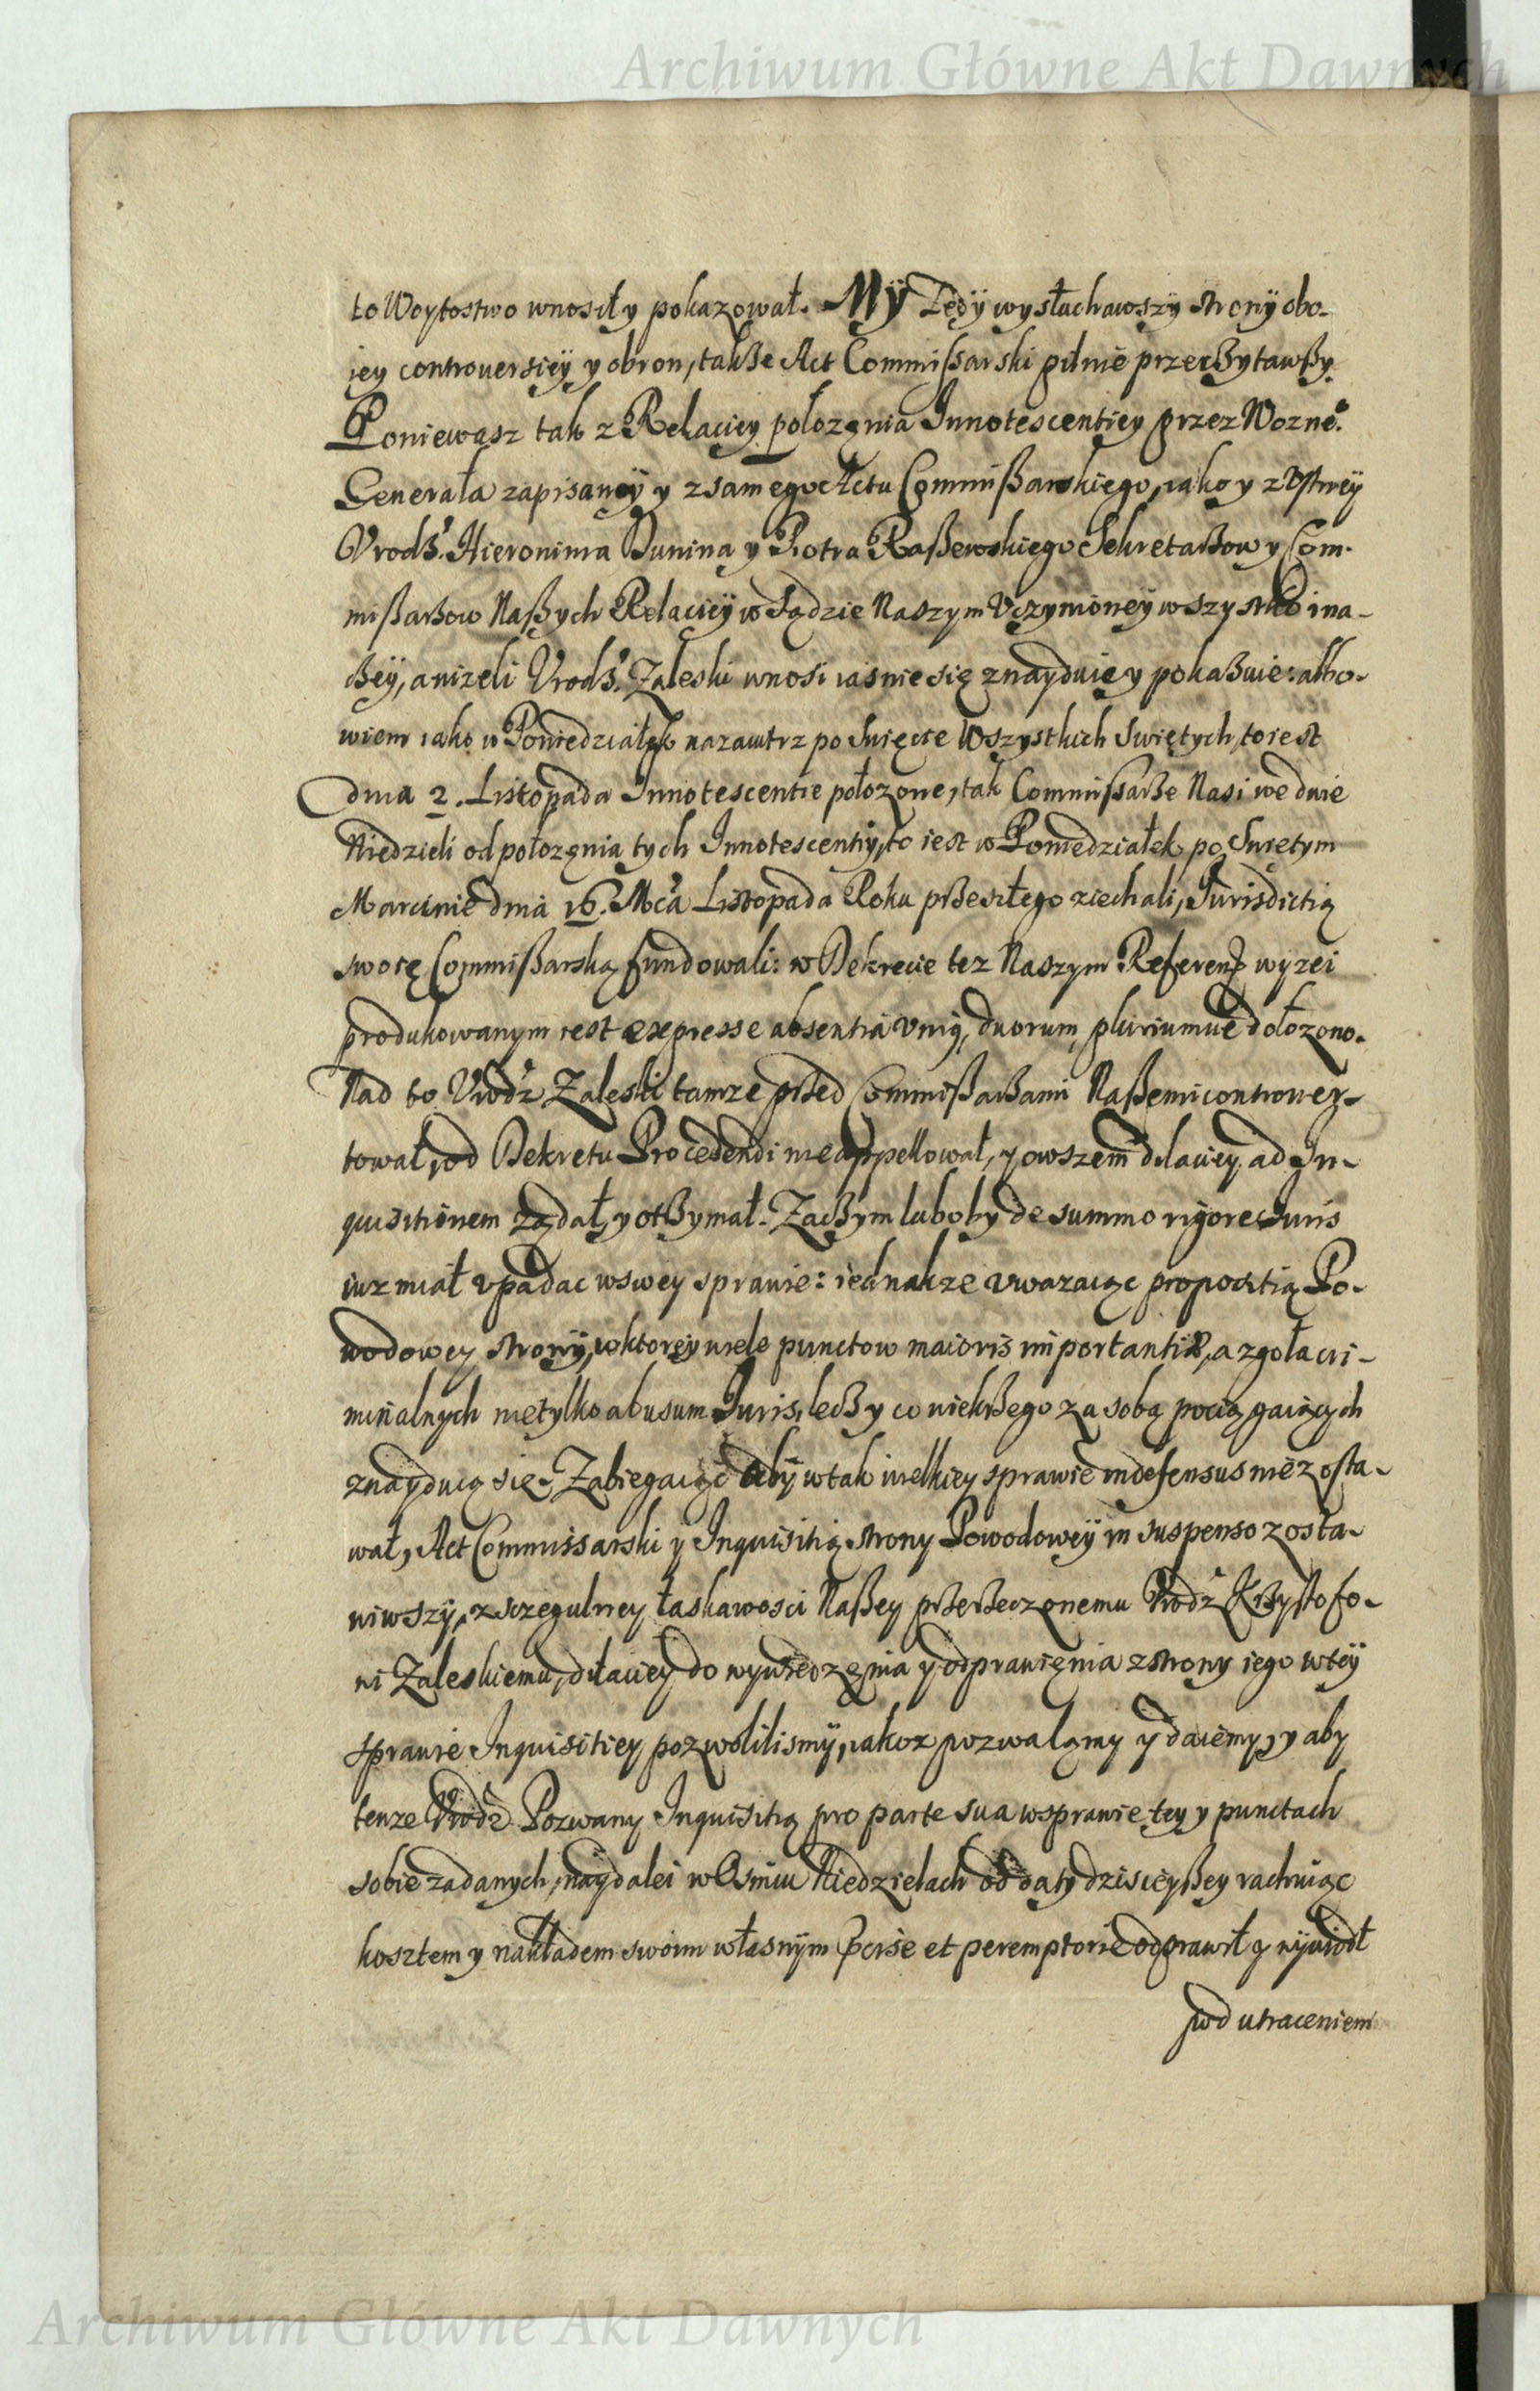 Archiwum Główne Akt Dawnych
to Woytostwo wnosił y pokazował. My Tedy wysłuchawszy strony obo-
iey controuersiey y obron, takße Act Commißarski pilnie przecżytawßy.
Poniewasz tak z Relaciey połozęnia Innotescentiey przez Woznego
Generała zapisaney y z samego Actu Commißarskiego, iako y z Vstney
Vrodz. Hieronima Dunina y Piotra Raßewskiego Sekretarzow y Com-
mißarzow Naßych Relaciey w Sądzie Naszym Vczynioney wszystko ina-
czey, anizeli Vrodz. Zaleski wnosi iasnie się znayduie y pokazuie: albo-
wiem iako w Poniedziałek nazaiutrz po Swięcie Wszystkich Swiętych, to iest
dnia 2. Listopada Innotescentie połozone, tak Commißarze Nasi we dwie
Niedzieli od połozęnia tych Innotescentiy, to iest w Poniedziałek po Swiętym
Marcinie dnia 16. Mca Listopada Roku przeszłego ziechali, Iurisdictią
swoię Commißarską fundowali: w Dekrecie tez Naszym Referend wyzei
produkowanym iest expresse absentia vnius, duorum, pluriumue dołozono.
Nad to Vrodz Zaleski tamze przed Commißarzami Naßemi controuer-
tował, od Dekretu Procedendi nie appellował, y owszem dilaciey ad In-
quisitionem ządał, y otrzymał. Zaczym luboby de summo rigore Iuris
iuz miał vpadac w swey sprawie: iednakze vwazaiąc propositią Po-
wodowey strony, w ktorey wiele punctow maioris importantiæ, a zgoła cri-
minalnych nie tylko abusum Iuris, lecz y co więkßego za sobą pociągaiących
znayduią się. Zabiegaiąc aby w tak wielkiey sprawie indefensus nie zosta-
wał, Act Commissarski y Inquisitią strony Powodowey in suspenso zosta-
wiwszy, z sczegulney łaskawosci Naßey przerzeczonemu Vrodz Krzysztofo-
wi Zaleskiemu, dilaciey do wywiedzęnia y odprawięnia z strony iego w tey
sprawie Inquisitiey pozwolilismy, iakoz pozwalamy y daiemy, y aby
tenze Vrodz Pozwany Inquisitią pro parte sua w sprawie tey y punctach
sobie zadanych, naydalei w Osmiu Niedzielach od daty dzisieyßey rachuiąc
kosztem y nakładem swoim własnym præcise et peremptorie odprawił y wywiodł
pod utraceniem
Archiwum Główne Akt Dawnych